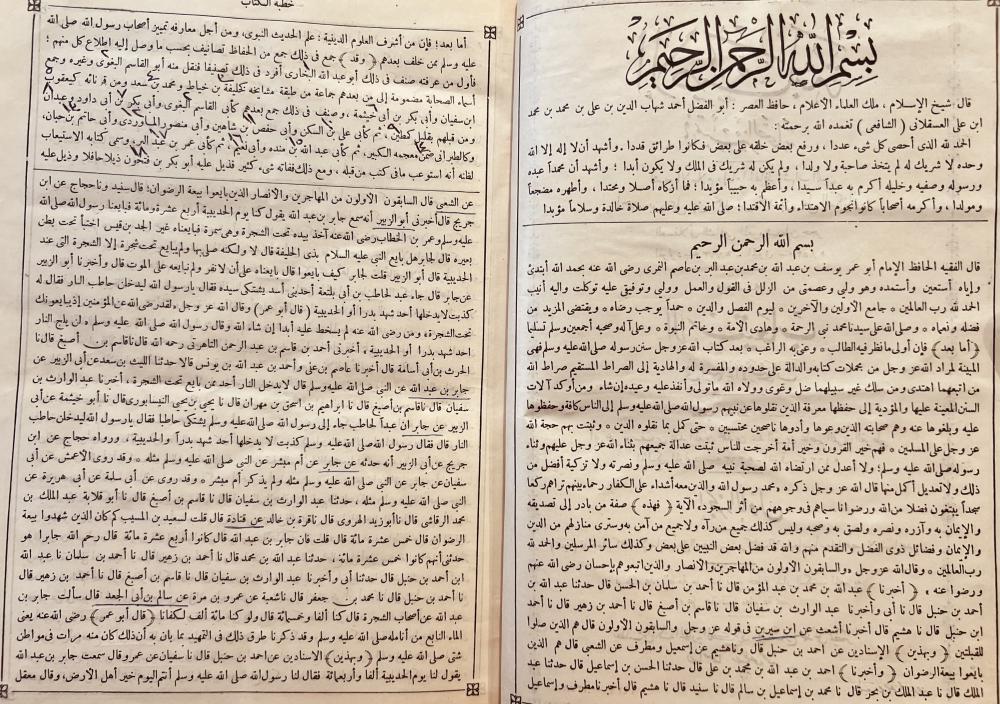 بسم الله الرحمن الرحيم
قال شيخ الإسلام ، ملك العلماء الأعلام ، حافظ العصر : أبو الفضل أحمد شهاب الدين بن على بن محمد بن محمد
ابن على العسقلانى ( الشافعى ) تغمده الله برحمته :
الحمد لله الذى أحصى كل شىء عددا ، ورفع بعض خلقه على بعض فكانوا طرائق قددا . وأشهد أن لا إله إلا الله
وحده لا شريك له لم يتخذ صاحبة ولا ولدا ، ولم يكن له شريك فى الملك ولا يكون أبدا ؛ وأشهد أن محمداً عبده
ورسوله وصفيه وخليله أكرم به عبداً سيدا ، وأعظم به حبيباً مؤيدا ؛ فما أزكاه أصلا ومحتدا ، وأطهره مضجعاً
ومولدا ، وأكرمه أصحاباً كانوا نجوم الاهتداء ، وأئمة الاقتدا ؛ صلى الله عليه وعليهم صلاة خالدة وسلاماً مؤبدا
بسم الله الرحمن الرحيم
قال الفقيه الحافظ الإمام أبو عمر يوسف بن عبد الله بن محمد بن عبد البر بن عاصم النمرى رضى الله عنه بحمد الله أبتدئ
وإياه أستعين وأستهديه وهو ولى وعصمتى من الزلل فى القول والعمل وولى وتوفيق عليه توكلت واليه أنيب
الحمد لله رب العالمين * جامع الأولين والآخرين * ليوم الفصل والدين * حمداً يوجب رضاه * ويقتضى المزيد من
فضله ونعماه * وصلى الله على سيدنا محمد نبى الرحمة * وهادى الأمة * وخاتم النبوة * وعلى آله وصحبه أجمعين وسلم تسليما
( أما بعد ) فإن أولى ما نظر فيه الطالب * وعنى به الراغب * بعد كتاب الله عز وجل سنن رسوله صلى الله عليه وسلم فهى
المبينة لمراد الله عز وجل من مجملات كتابه والدالة على حدوده والمفسرة له والهادية إلى الصراط المستقيم صراط الله
من اتبعها اهتدى ومن سلك غير سبيلها ضل وغوى وولاه الله ما تولى وأنفذ عليه وعيده إن شاء ومن أوكد آلات
السنن المعينة عليها والمؤدية إلى حفظها معرفة الذين نقلوها عن نبيهم رسول الله صلى الله عليه وسلم إلى الناس كافة وحفظوها
عليه وبلغوها عنه وهم صحابته الذين وعوها وأدوها ناصحين محتسبين * حتى كمل بما نقلوه الدين * وثبتت بهم حجة الله
عز وجل على المسلمين * فهم خير القرون وخير أمة أخرجت للناس ثبتت عدالة جميعهم بثناء الله عز وجل عليهم وثناء
رسوله صلى الله عليه وسلم ؛ ولا أعدل ممن ارتضاه الله لصحبة نبيه صلى الله عليه وسلم ونصرته ولا تزكية أفضل من
ذلك ولا تعديل أكمل منها قال الله عز وجل ذكره * محمد رسول الله والذين معه أشداء على الكفار رحماء بينهم تراهم ركعا
سجداً يبتغون فضلا من الله ورضوانا سيماهم فى وجوههم من أثر السجود * الآية ( فهذه ) صفة من بادر إلى تصديقه
والإيمان به وآزره ونصره ولصق به وصحبه وليس كذلك جميع من رآه ولا جميع من آمن به وسترى منازلهم من الدين
والإيمان وفضائل ذوى الفضل والتقدم منهم والله قد فضل بعض النبيين على بعض وكذلك سائر المرسلين والحمد لله
رب العالمين * وقال الله عز وجل * والسابقون الأولون من المهاجرين والأنصار والذين اتبعوهم بإحسان رضى الله عنهم
ورضوا عنه * ( أخبرنا ) عبد الله بن محمد بن عبد المؤمن قال نا أحمد بن سلمان بن الحسن قال حدثنا عبد الله بن
أحمد بن حنبل قال نا أبى وأخبرنا عبد الوارث بن سفيان قال نا قاسم بن أصبغ قال نا أحمد بن زهير قال نا أحمد
ابن حنبل قال نا هشيم قال أخبرنا أشعث عن ابن سيرين فى قوله عز وجل والسابقون الأولون قال هم الذين صلوا
للقبلتين ( وبهذين ) الإسنادين عن أحمد بن حنبل قال وناهشيم عن إسمعيل ومطرف عن الشعبى قال هم الذين
بايعوا بيعة الرضوان ( وأخبرنا ) أحمد بن عبد الله بن محمد بن على قال حدثنا الحسن بن إسماعيل قال حدثنا عبد
الملك قال نا عبد الملك بن بحر قال نا محمد بن إسماعيل بن سالم قال نا سنيد قال نا هشيم قال أخبرنا مطرف وإسماعيل
خطبة الكتاب
أما بعد ؛ فإن من أشرف العلوم الدينية : علم الحديث النبوى ، ومن أجل معارفه تمييز أصحاب رسول الله صلى الله
عليه وسلم ممن خلف بعدهم ( وقد ) جمع فى ذلك جمع من الحفاظ تصانيف بحسب ما وصل إليه اطلاع كل منهم ؛
فأول من عرفته صنف فى ذلك أبو عبد الله البخارى أفرد فى ذلك تصنيفا فنقل منه أبو القاسم البغوى وغيره وجمع
أسماء الصحابة مضمومة إلى من بعدهم جماعة من طبقة مشايخه كخليفة بن خياط ومحمد بن سعد ومن قرنائه كيعقوب
ابن سفيان وأبى بكر بن أبى خيثمة ، وصنف فى ذلك جمع بعدهم كأبى القاسم البغوى وأبى بكر بن أبى داود وعبدان
ومن قبلهم بقليل كمطين ، ثم كأبى على بن السكن وأبى حفص بن شاهين وأبى منصور الماوردى وأبى حاتم بن حبان ،
وكالطبرانى ضمن معجمه الكبير ، ثم كأبى عبد الله بن منده وأبى نعيم ، ثم كأبى عمر بن عبد البر وسمى كتابه الاستيعاب
لظنه أنه استوعب ما فى كتب من قبله ، ومع ذلك ففاته شىء كثير فذيل عليه أبو بكر بن فتحون ذيلا حافلا وذيل عليه
عن الشعبى قال السابقون الأولون من المهاجرين والأنصار الذين بايعوا بيعة الرضوان ؛ قال سنيد ونا حجاج عن ابن
جريج قال أخبرنى أبو الزبير أنه سمع جابر بن عبد الله يقول كنا يوم الحديبية أربع عشرة ومائة فبايعنا رسول الله صلى الله
عليه وسلم وعمر بن الخطاب رضى الله عنه آخذ بيده تحت الشجرة وهى سمرة فبايعناه غير الجد بن قيس اختبأ تحت بطن
بعيره قال لجابر هل بايع النبى عليه السلام بذى الحليفة قال لا ولكنه صلى بها ولم يبايع تحت شجرة إلا الشجرة التى عند
الحديبية قال أبو الزبير قلت لجابر كيف بايعوا قال بايعناه على أن لا نفر ولم نبايعه على الموت قال وأخبرنا أبو الزبير
عن جابر قال جاء عبد لحاطب بن أبى بلتعة أحد بنى أسد يشتكى سيده فقال يا رسول الله ليدخلن حاطب النار فقال له
كذبت لا يدخلها أحد شهد بدرا أو الحديبية ( قال أبو عمر ) وقال الله عز وجل * لقد رضى الله عن المؤمنين إذ يبايعونك
تحت الشجرة * ومن رضى الله عنه لم يسخط عليه أبدا إن شاء الله وقال رسول الله صلى الله عليه وسلم * لن يلج النار
أحد شهد بدرا أو الحديبية * أخبرنى أحمد بن قاسم بن عبد الرحمن التاهرتى رحمه الله قال نا قاسم بن أصبغ قال نا
الحرث بن أبى أسامة قال أخبرنا عاصم بن على وأحمد بن عبد الله بن يونس قالا حدثنا الليث بن سعد عن أبى الزبير عن
جابر بن عبد الله عن النبى صلى الله عليه وسلم قال لا يدخل النار أحد ممن بايع تحت الشجرة * أخبرنا عبد الوارث بن
سفيان قال نا قاسم بن أصبغ قال نا ابراهيم بن اسحق بن مهران قال نا يحيى بن يحيى النيسابورى قال نا أبو خيثمة عن أبى
الزبير عن جابر أن عبداً لحاطب جاء إلى رسول الله صلى الله عليه وسلم يشتكى حاطبا فقال يا رسول الله ليدخلن حاطب
النار قال فقال رسول الله صلى الله عليه وسلم كذبت لا يدخلها أحد شهد بدراً والحديبية * ورواه حجاج عن ابن
جريج عن أبى الزبير أنه حدثه عن جابر عن أم مبشر عن النبى صلى الله عليه وسلم مثله * وقد روى الأعمش عن أبى
سفيان عن جابر عن النبى صلى الله عليه وسلم مثله ولم يذكر أم مبشر * وقد روى عن أبى سلمة عن أبى هريرة عن
النبى صلى الله عليه وسلم مثله * حدثنا عبد الوارث بن سفيان قال نا قاسم بن أصبغ قال نا أبو قلابة عبد الملك بن
محمد الرقاشى قال نا أبو زيد الهروى قال نا قرة بن خالد عن قتادة قال قلت لسعيد بن المسيب كم كان الذين شهدوا بيعة
الرضوان قال خمس عشرة مائة قال قلت فإن جابر بن عبد الله قال كانوا أربع عشرة مائة قال رحم الله جابرا هو
حدثنى أنهم كانوا خمس عشرة مائة * حدثنا عبد الله بن محمد قال نا أحمد بن زهير قال نا أحمد بن سلمان نا عبد الله
ابن أحمد بن حنبل قال حدثنى أبى وأخبرنا عبد الوارث بن سفيان قال نا قاسم بن أصبغ قال نا أحمد بن زهير قال
نا أحمد بن حنبل قال نا محمد بن جعفر قال نا شعبة عن عمرو بن مرة عن سالم بن أبى الجعد قال سألت جابر بن
عبد الله عن أصحاب الشجرة قال كنا ألفا وخمسمائة قال ولو كنا مائة ألف لكفانا ( قال أبو عمر ) رضى الله عنه يعنى
الماء النابع من أنامله صلى الله عليه وسلم وقد ذكرنا طرق ذلك فى التمهيد بما بان به أن ذلك كان منه مرات فى مواطن
شتى صلى الله عليه وسلم ( وبهذين ) الاسنادين عن أحمد بن حنبل قال نا سفيان عن عمرو قال سمعت جابر بن عبد الله
يقول لنا يوم الحديبية ألفا وأربعمائة فقال لنا رسول الله صلى الله عليه وسلم أنتم اليوم خير أهل الأرض ، وقال معقل